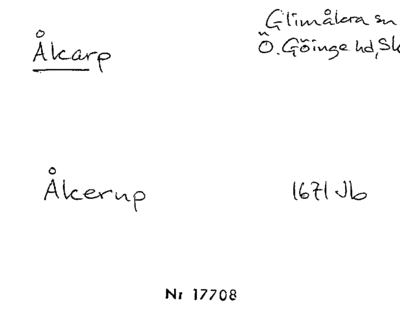 Glimåkra sn
Åkarp
Ö. Göinge hd, Sk
Åkerup
1671 Jb
Nr 17708